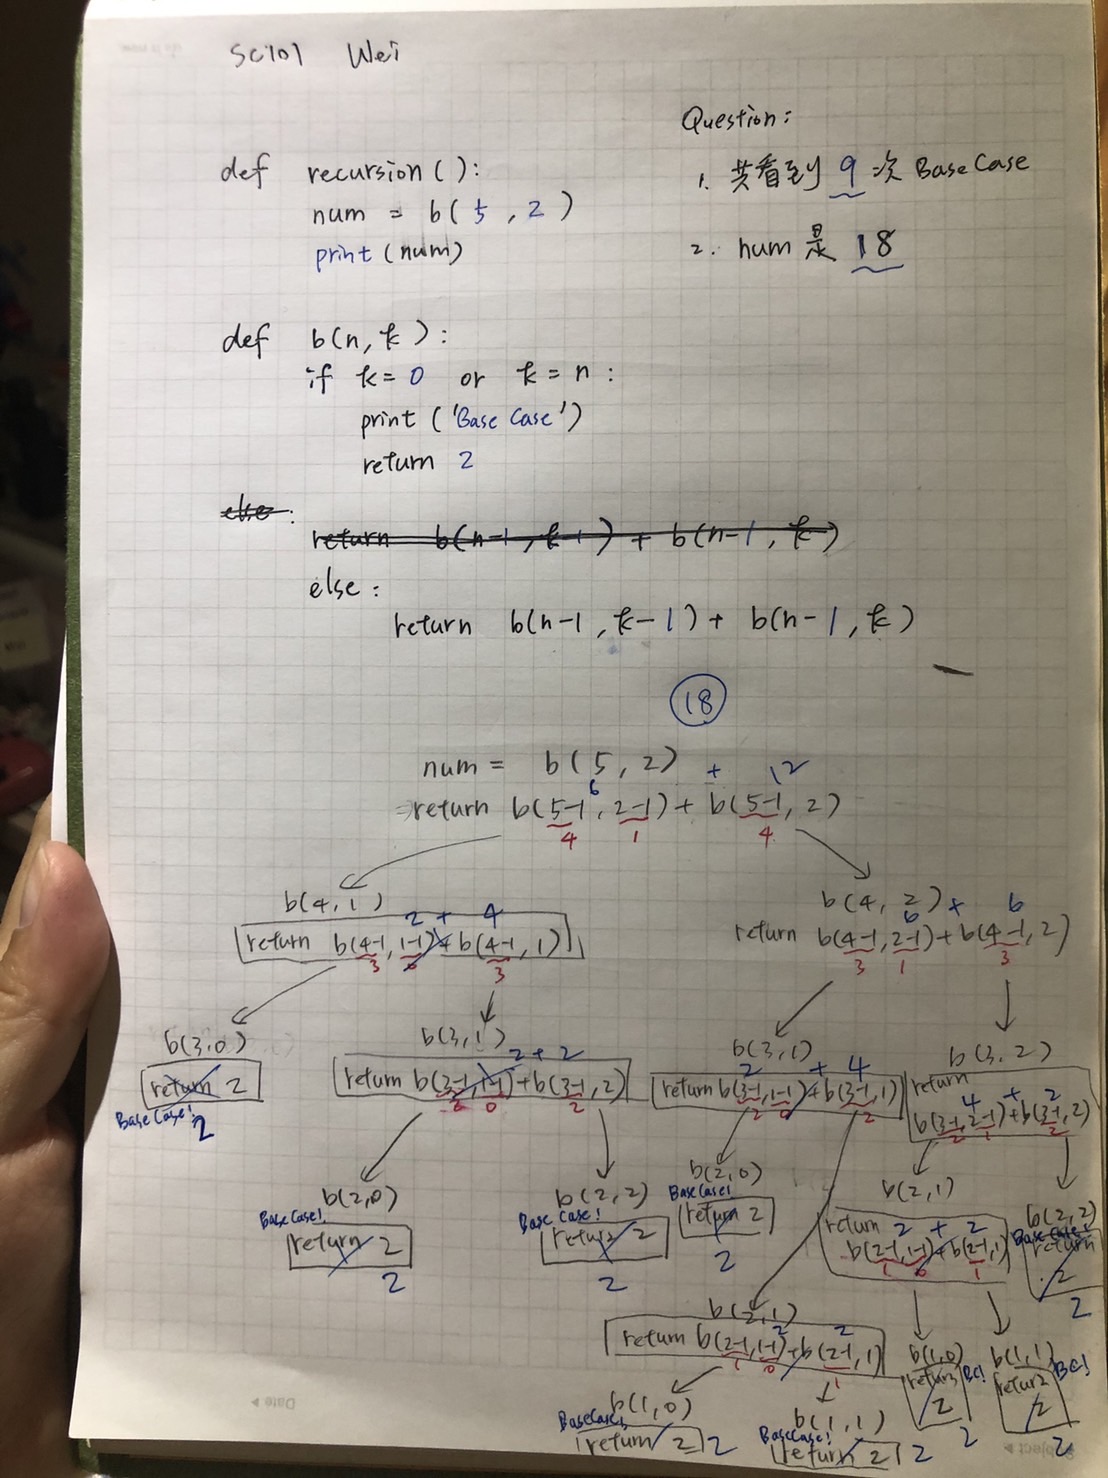 SC101 Wei
Question:
def recursion():
num = b(5, 2)
print(num)
1. 共看到 9 次 Base Case
2. num 是 18
def b(n, k):
if k = 0 or k = n:
print('Base Case')
return 2
else:
return b(n-1, k-1) + b(n-1, k)
else:
return b(n-1, k-1) + b(n-1, k)
18
num = b(5, 2) + 12
6
return b(5-1, 2-1) + b(5-1, 2)
4 1 4
b(4,1)
2 + 4
return b(4-1, 1-1) + b(4-1, 1)
3 0 3
b(4, 2) +
6 6
return b(4-1, 2-1) + b(4-1, 2)
3 1 3
b(3,0)
return 2
Base Case!
2
b(3,1)
2 + 2
return b(3-1, 1-1) + b(3-1, 2)
0 2
b(3,1)
2 + 4
return b(3-1, 1-1) + b(3-1, 1)
2 0 2
b(3,2)
return
4 + 2
b(3-1, 2-1) + b(3-1, 2)
2 1 2
b(2,0)
Base Case!
return 2
2
b(2,2)
Base Case!
return 2
2
b(2,0)
Base Case!
return 2
2
b(2,1)
return 2 + 2
b(2-1, 1-1) + b(2-1, 1)
1 0 1
b(2,2)
Base Case!
return
2
2
b(2,1)
2 2
return b(2-1, 1-1) + b(2-1, 1)
1 0 1
b(1,0)
BC!
return
2
2
b(1,1)
BC!
return
2
2
b(1,0)
Base Case!
return 2
2
b(1,1)
Base Case!
return 2
2
Date